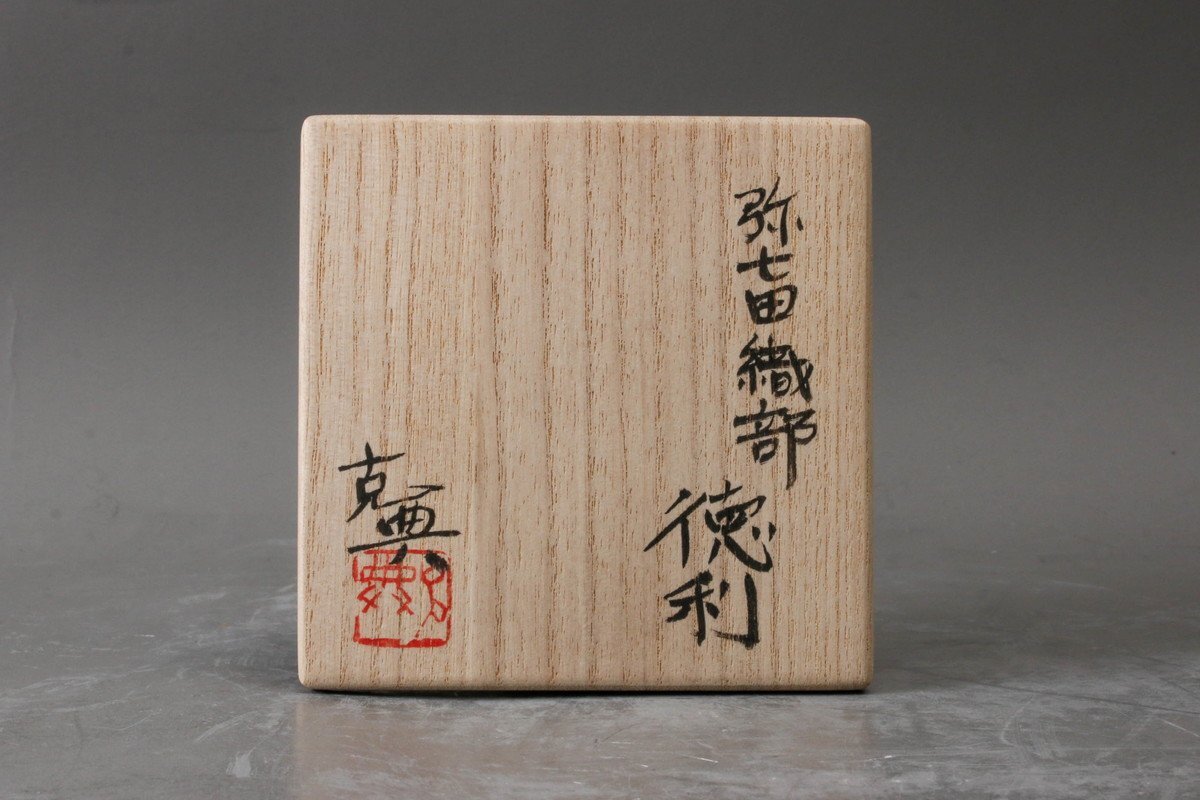 弥七田織部
徳利
克典